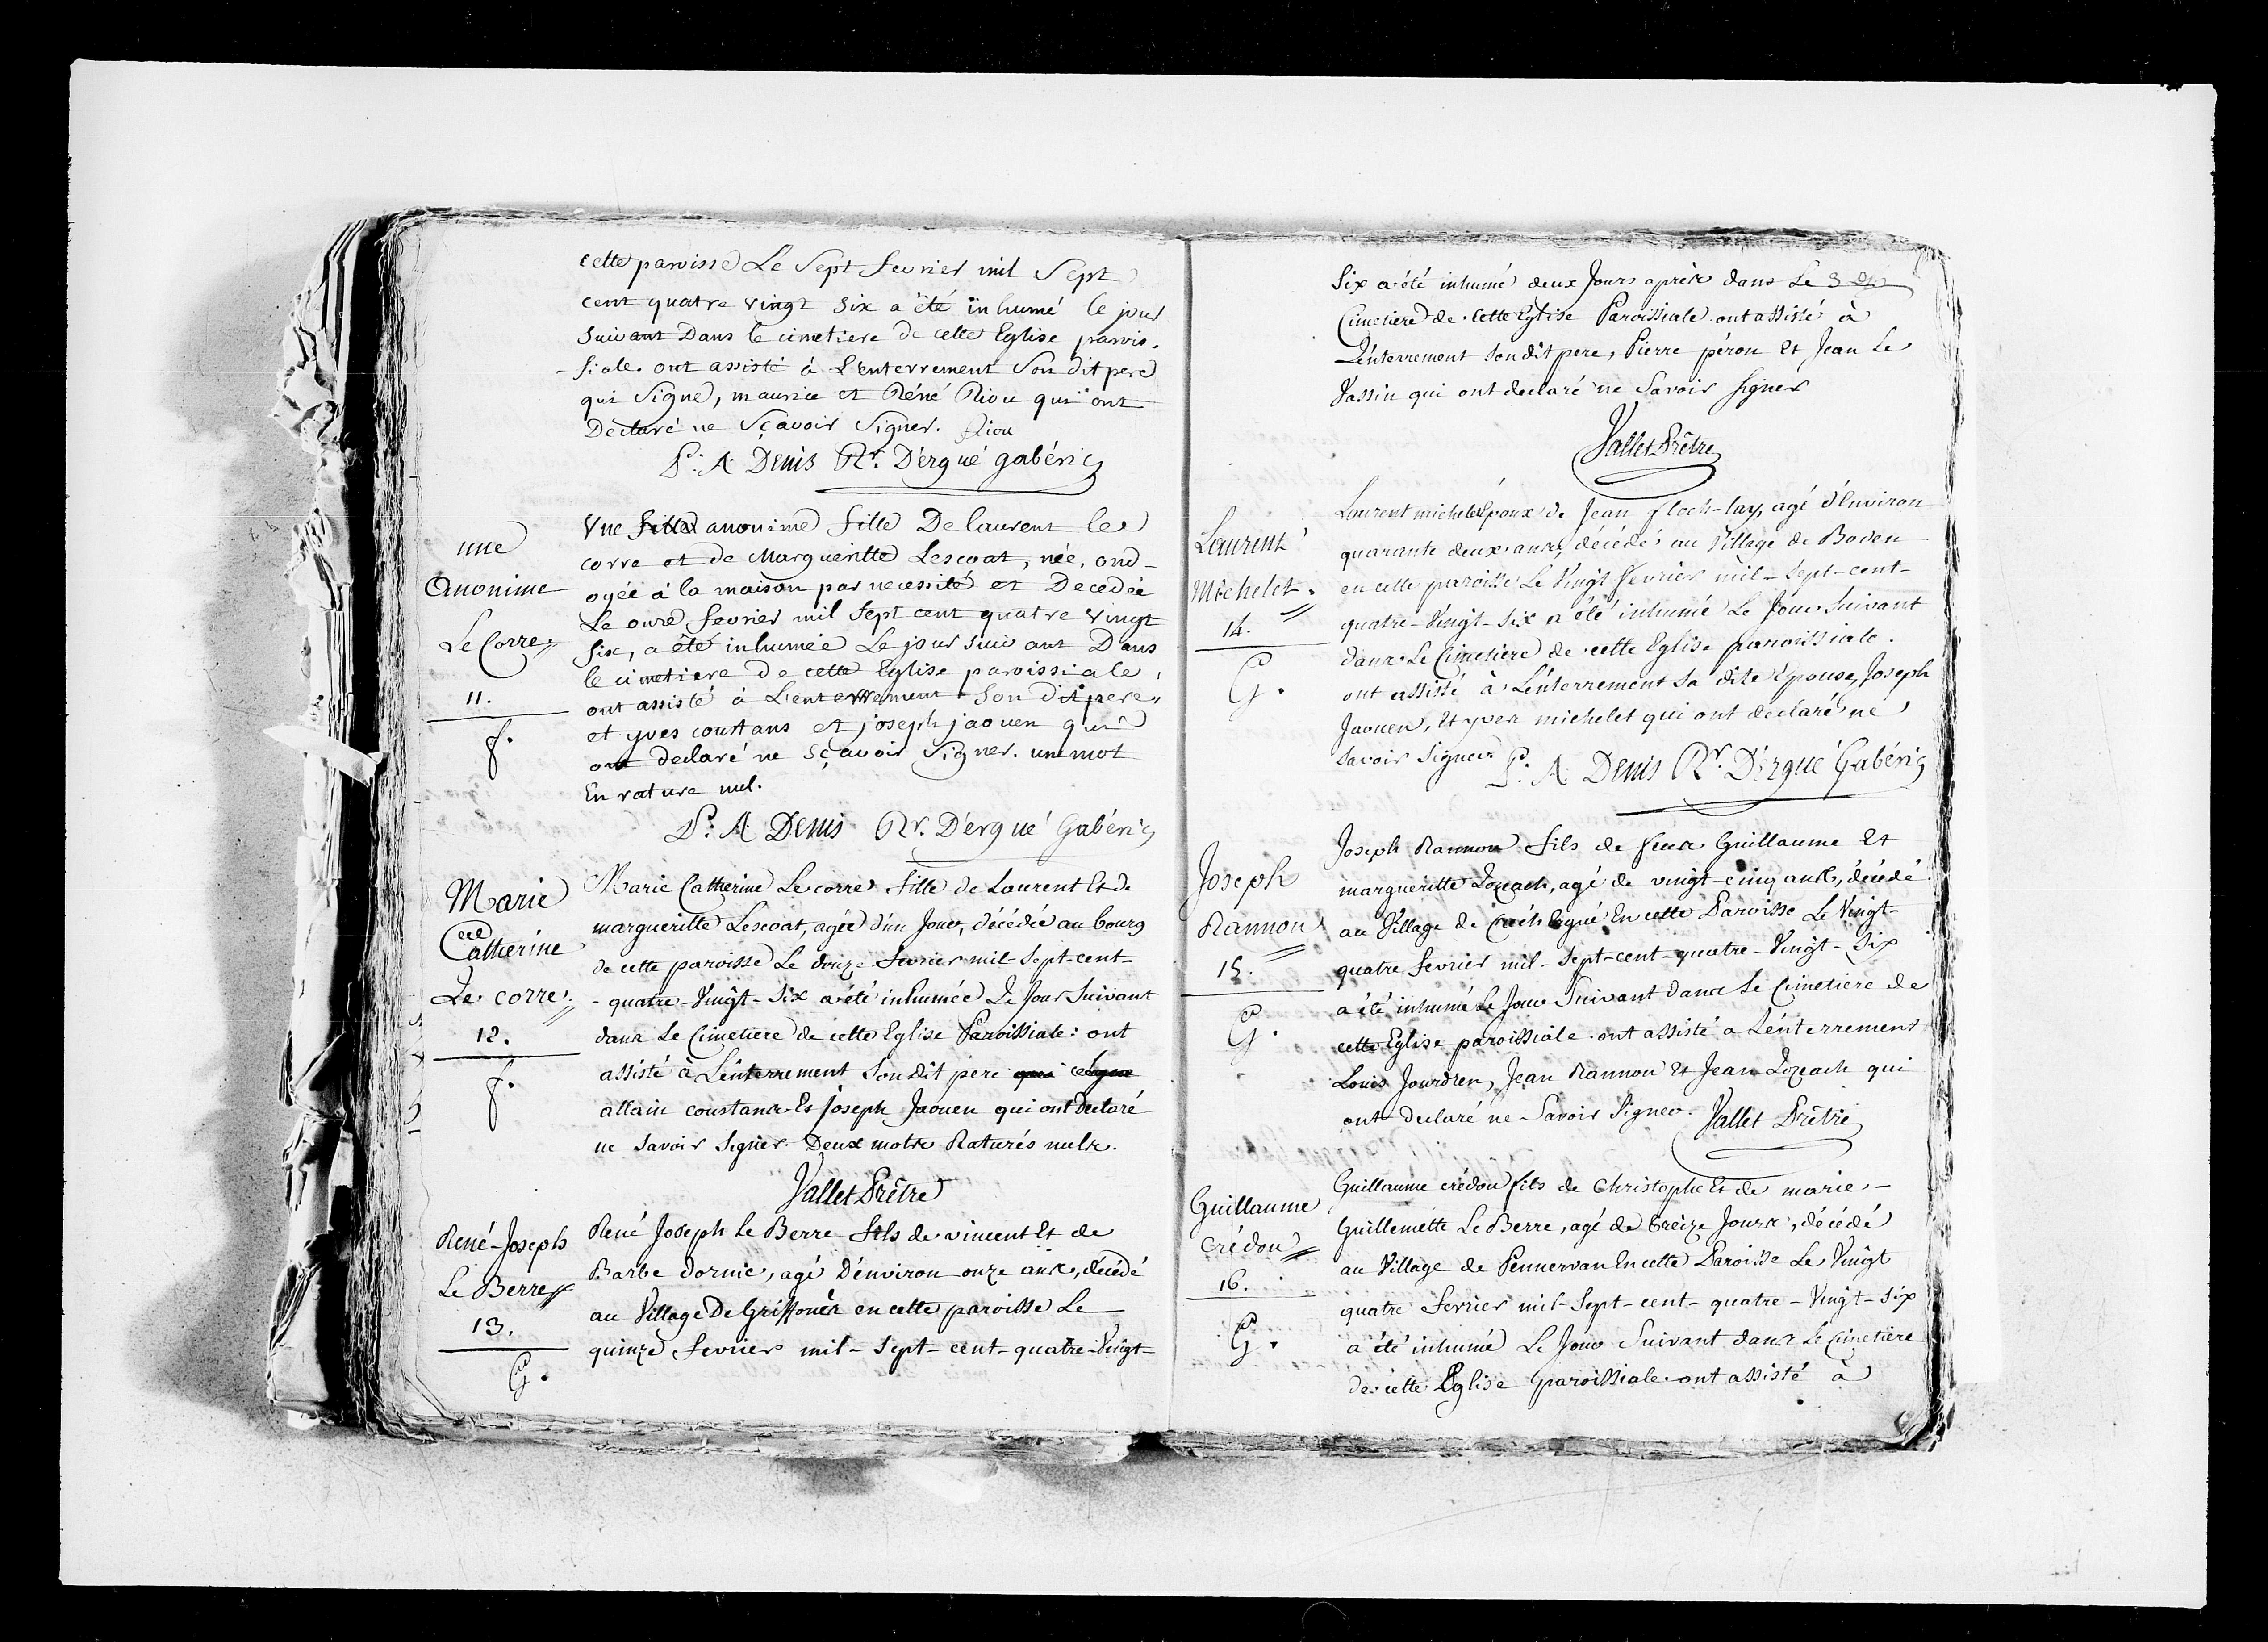 cette paroisse Le Sept fevrier mil Sept
cent quatre vingt six a été inhumé le jour
suivant Dans le cimetiere de cette Eglise parois-
siale. ont assisté à L'enterrement Son dit pere
qui Signe, maurice et Réné Riou qui ont
Déclaré ne Sçavoir Signer. Riou
P: A: Denis Rr. D'ergué gabéric
une
Anonime
Le Corre
11.
f.
Une fille anonime fille De laurent le
corre et de Margueritte Lescoat, née, ond-
oyée à la maison par necessité et Decedée
Le onze fevrier mil Sept cent quatre vingt
six, a été inhumée Le jour suivant Dans
le cimetiere de cette Eglise paroissiale,
ont assisté à L'enterrement Son dit pere,
et yves constans et joseph jaouen qui
ont declaré ne sçavoir Signer. un mot
En rature nul.
P: A: Denis Rr. D'ergué Gabéric
Marie
Catherine
Le corre
12.
f.
Marie Catherine Le corre fille de Laurent Et de
margueritte Lescoat, agée d'un Jour, décédée au bourg
de cette paroisse Le douze fevrier mil-Sept-cent-
-quatre-Vingt-Six a été inhumée Le Jour Suivant
dans Le Cimetiere de cette Eglise Paroissiale: ont
assisté à L'enterrement Son dit pere qui
allain constans Et Joseph Jaouen qui ont declaré
ne Savoir Signer. Deux mots Raturés nuls.
Vallet Prêtre
René-Joseph
Le Berre
13.
G.
René Joseph Le Berre fils de vincent Et de
Barbe dornic, agé D'environ onze ans, décédé
au Village De Griffonés en cette paroisse Le
quinze fevrier mil-Sept-cent-quatre-Vingt-
Six a été inhumé deux Jours après dans Le
Cimetiere de cette Eglise Paroissiale. ont assisté à
L'enterrement Son dit pere, Pierre péron Et Jean Le
Vassin qui ont declaré ne Savoir Signer
Vallet Prêtre
Laurent
Michelet.
14.
G.
Laurent michelet Epoux de Jean floch-lay, agé d'Environ
quarante deux ans, décédé au Village de Boden
en cette paroisse Le Vingt fevrier mil-Sept-cent-
quatre-Vingt-Six a été inhumé Le Jour Suivant
dans Le Cimetiere de cette Eglise paroissiale.
ont assisté à L'enterrement Sa dite Epouse, Joseph
Jaouen, Et yves michelet qui ont declaré ne
Savoir Signer
P: A: Denis Rr. D'ergué Gabéric
Joseph
Rannou
15.
G.
Joseph Rannou fils de feux Guillaume Et
margueritte Lozeach, agé de vingt-cinq ans, décédé
au Village de Créch Ergué En cette Paroisse Le Vingt-
quatre fevrier mil-Sept-cent-quatre-Vingt-Six
a été inhumé Le Jour Suivant dans Le Cimetiere de
cette Eglise paroissiale. ont assisté a L'enterrement
Louis Jourdren, Jean Rannou Et Jean Lozeach qui
ont declaré ne Savoir Signer. Vallet Prêtre
Guillaume
Crédou
16.
G.
Guillaume crédou fils de Christophe Et de marie-
Guillemette Le Berre, agé de treize Jours, décédé
au Village de Pennervan En cette Paroisse Le Vingt
quatre fevrier mil-Sept-cent-quatre-Vingt-Six
a été inhumé Le Jour Suivant dans Le Cimetiere
de cette Eglise paroissiale ont assisté à